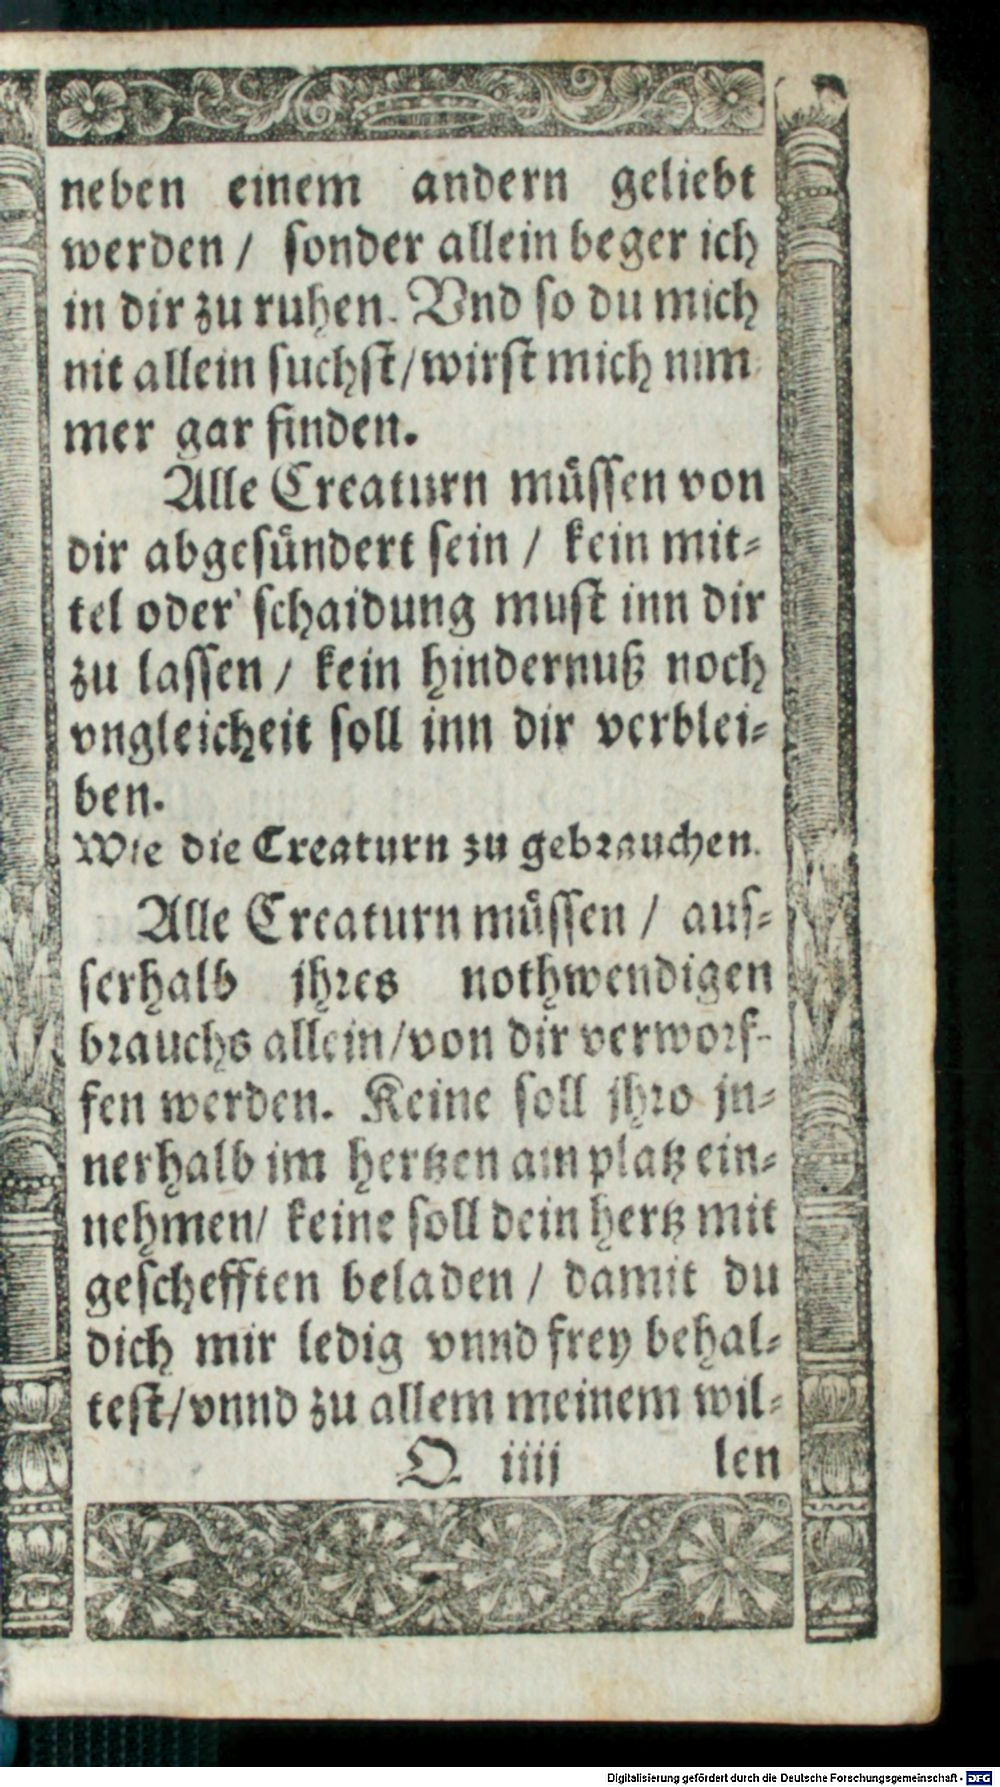 neben einem andern geliebt
werden / sonder allein beger ich
in dir zu ruhen. Vnd so du mich
nit allein suchst/wirst mich nim
mer gar finden.
Alle Creaturn müssen von
dir abgesündert sein / kein mit-
tel oder schaidung must inn dir
zu lassen / kein hindernuß noch
vngleicheit soll inn dir verblei-
ben.
Wie die Creaturn zu gebrauchen.
Alle Creaturn müssen / aus-
serhalb jhres nothwendigen
brauchs allein/von dir verworf-
fen werden. Keine soll jhro jn-
nerhalb im hertzen ain platz ein-
nehmen/ keine soll dein hertz mit
geschefften beladen / damit du
dich mir ledig vnnd frey behal-
test/vnnd zu allem meinem wil-
O iiij len
Digitalisierung gefördert durch die Deutsche Forschungsgemeinschaft - DFG